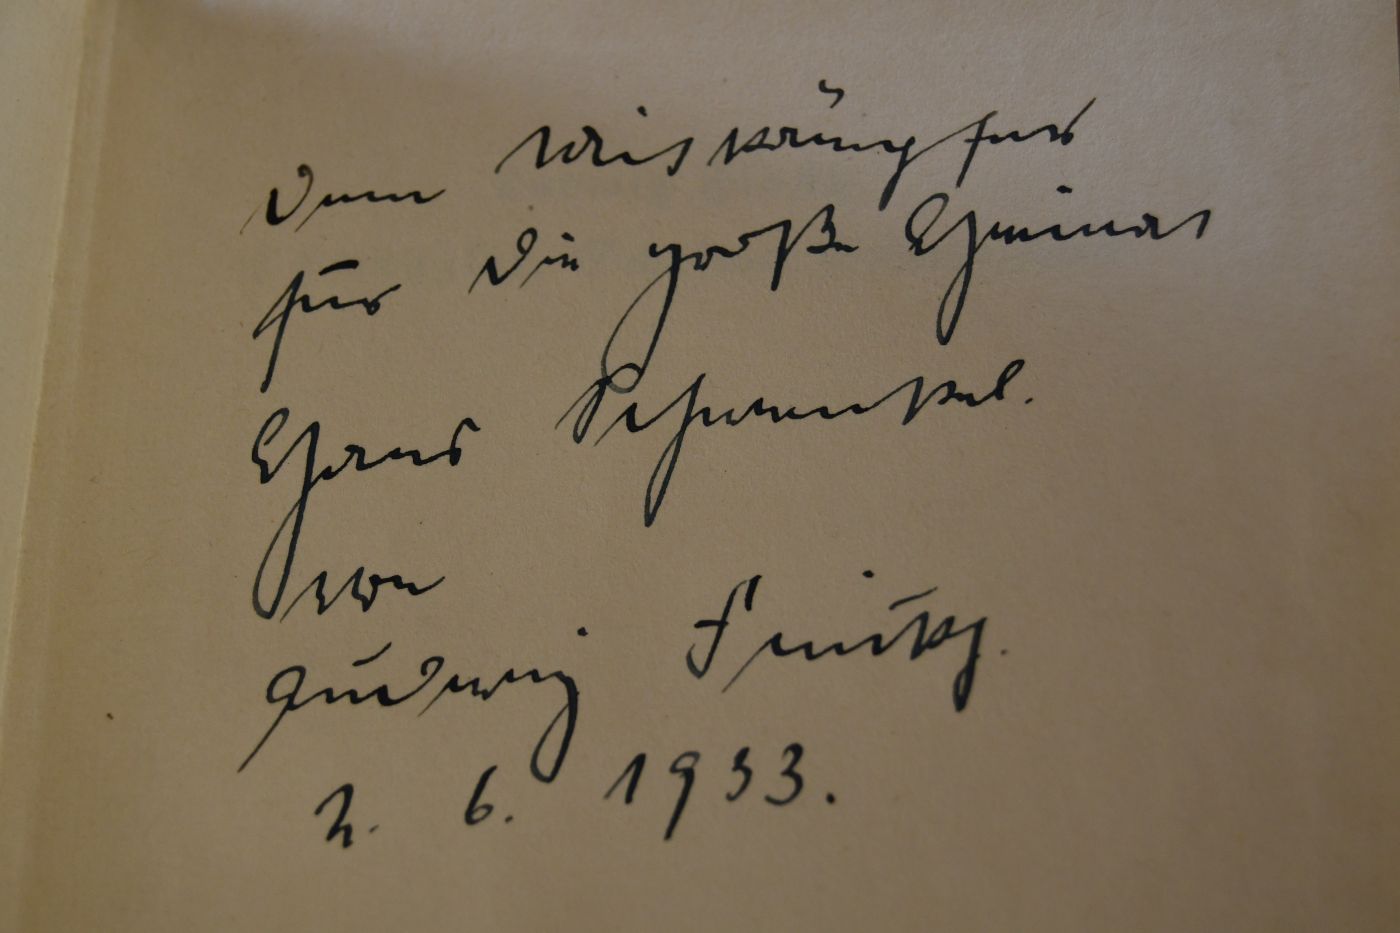 Dem Mitkämpfer
für die große Heimat
Hans Schwenkel.
von
Ludwig Finckh.
2. 6. 1933.